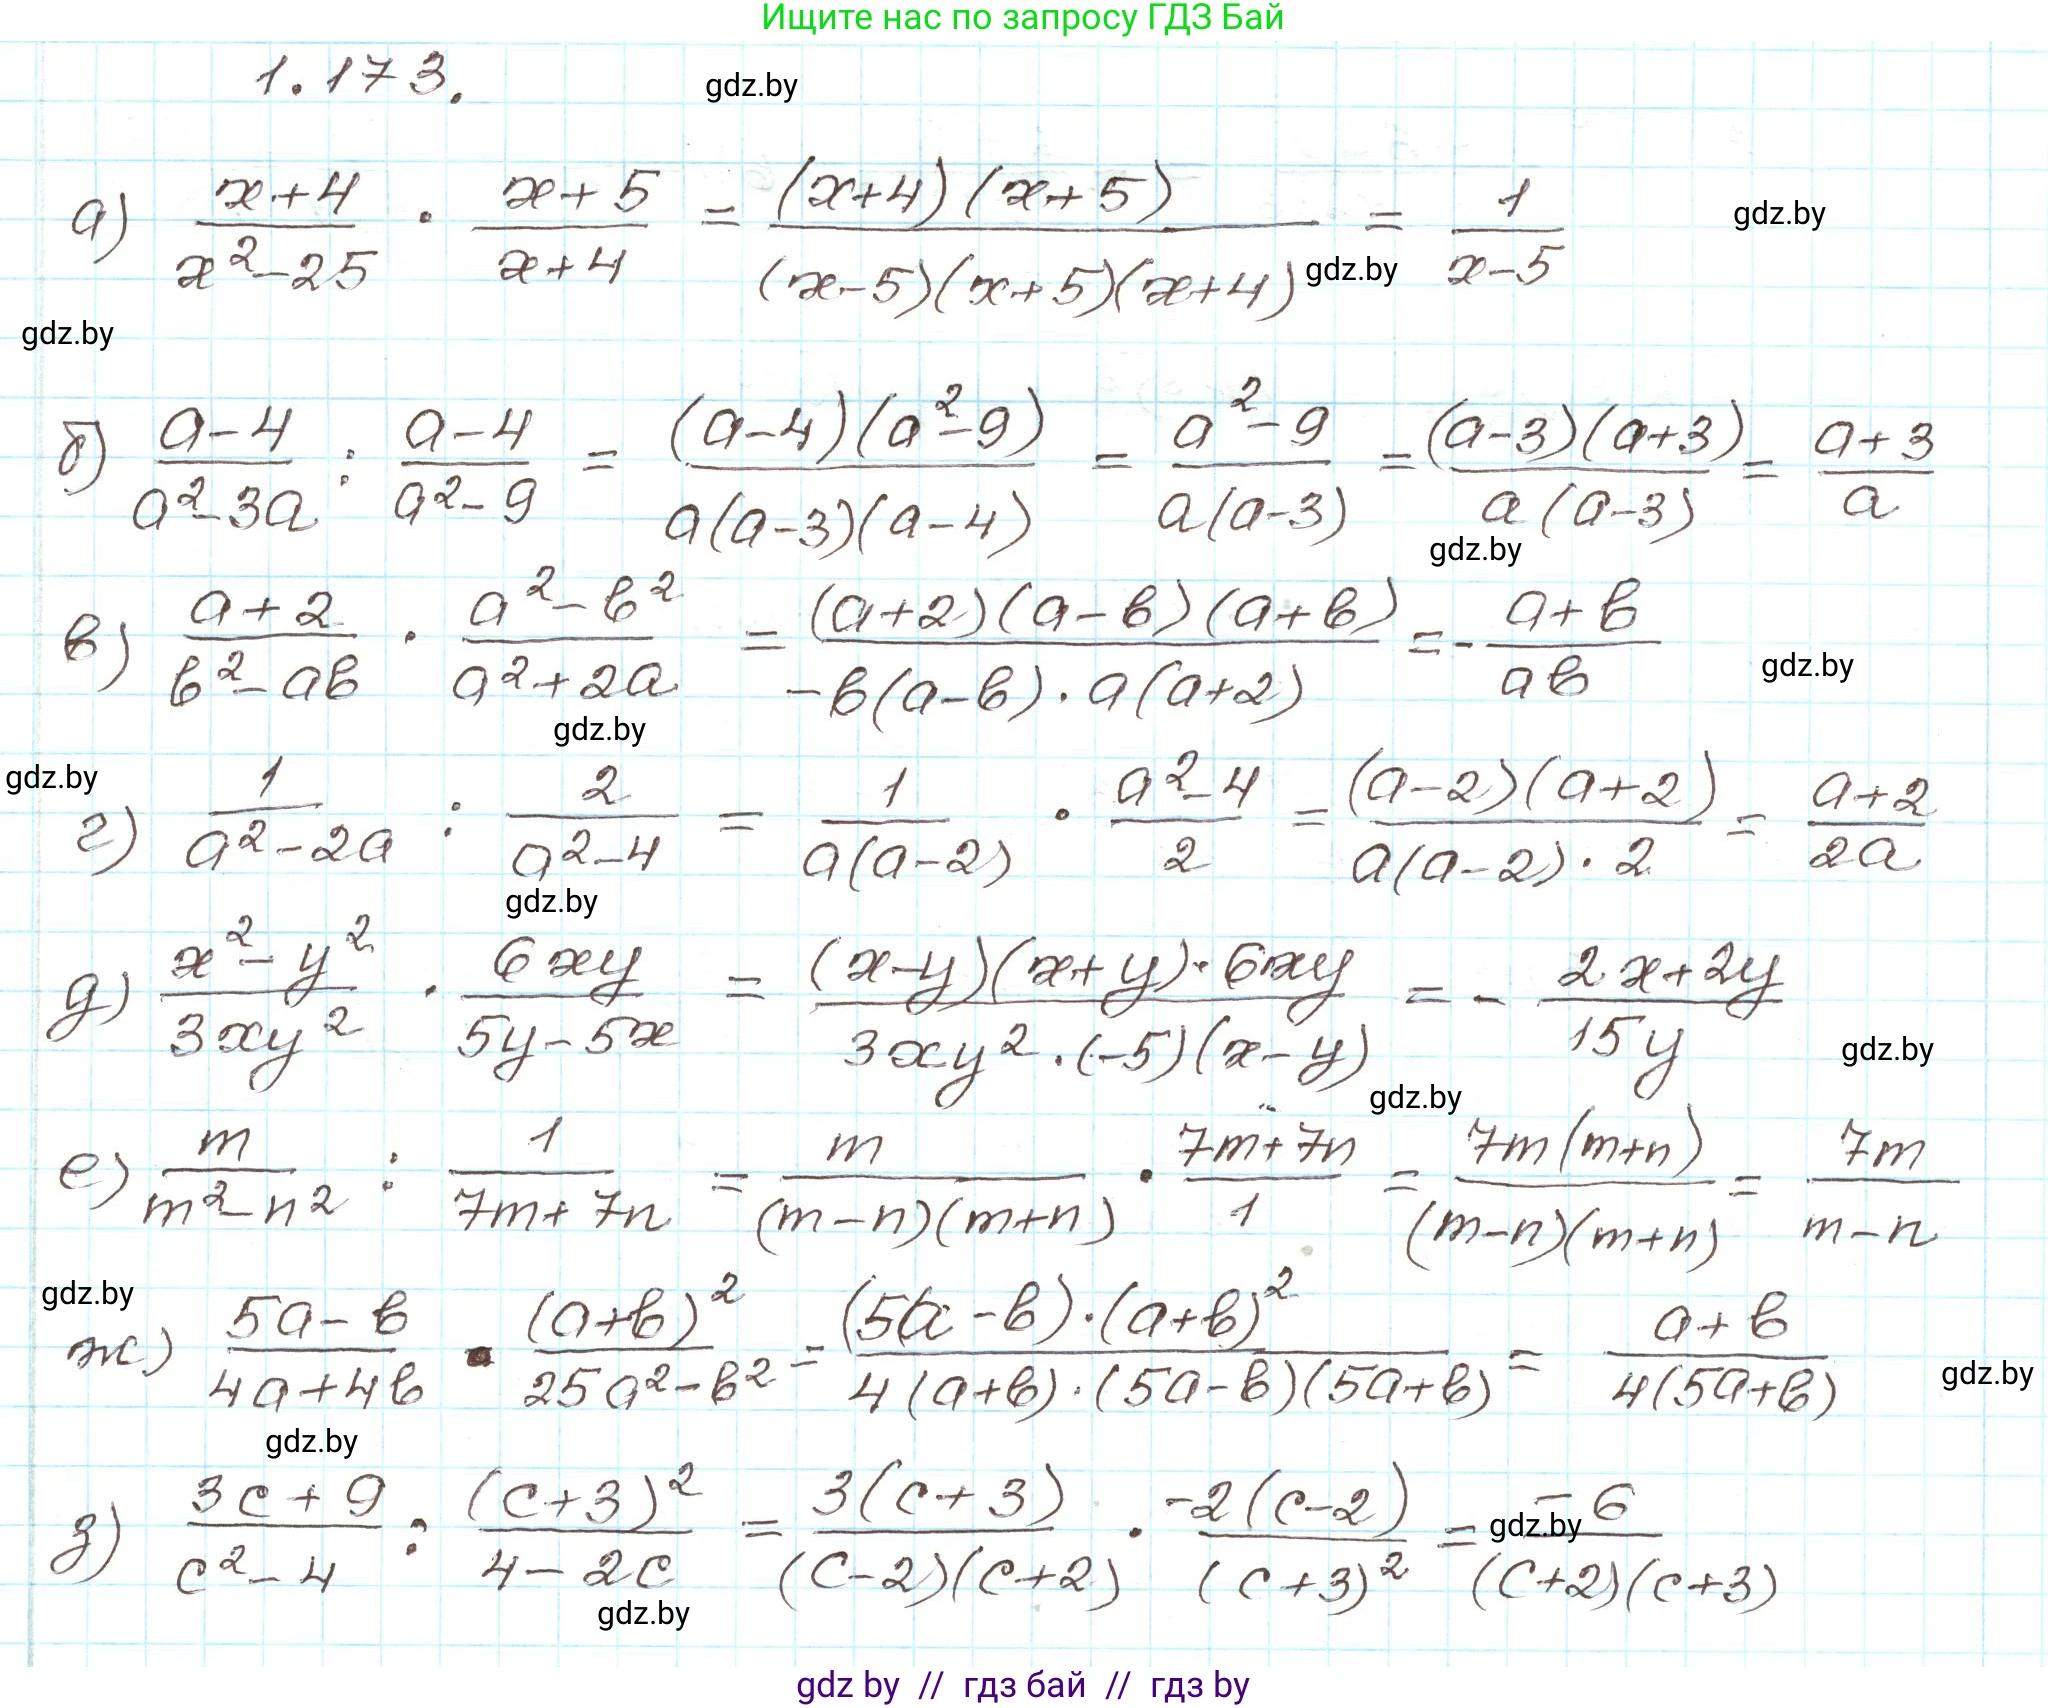 Ищите нас по запросу ГДЗ Бай
1.173.
gdz.by
а) (x+4)/(x²-25) · (x+5)/(x+4) = ((x+4)(x+5))/((x-5)(x+5)(x+4)) = 1/(x-5)
gdz.by
gdz.by
gdz.by
б) (a-4)/(a²-3a) : (a-4)/(a²-9) = ((a-4)(a²-9))/(a(a-3)(a-4)) = (a²-9)/(a(a-3)) = ((a-3)(a+3))/(a(a-3)) = (a+3)/a
gdz.by
в) (a+2)/(b²-ab) · (a²-b²)/(a²+2a) = ((a+2)(a-b)(a+b))/(-b(a-b)·a(a+2)) = - (a+b)/(ab)
gdz.by
gdz.by
gdz.by
г) 1/(a²-2a) : 2/(a²-4) = 1/(a(a-2)) · (a²-4)/2 = ((a-2)(a+2))/(a(a-2)·2) = (a+2)/(2a)
gdz.by
д) (x²-y²)/(3xy²) · (6xy)/(5y-5x) = ((x-y)(x+y)·6xy)/(3xy²·(-5)(x-y)) = - (2x+2y)/(15y)
gdz.by
gdz.by
е) m/(m²-n²) : 1/(7m+7n) = m/((m-n)(m+n)) · (7m+7n)/1 = (7m(m+n))/((m-n)(m+n)) = 7m/(m-n)
gdz.by
ж) (5a-b)/(4a+4b) · (a+b)²/(25a²-b²) = ((5a-b)·(a+b)²)/(4(a+b)·(5a-b)(5a+b)) = (a+b)/(4(5a+b))
gdz.by
gdz.by
з) (3c+9)/(c²-4) : (c+3)²/(4-2c) = (3(c+3))/((c-2)(c+2)) · (-2(c-2))/(c+3)² = -6/((c+2)(c+3))
gdz.by
gdz.by
gdz by // гдз бай // гдз by